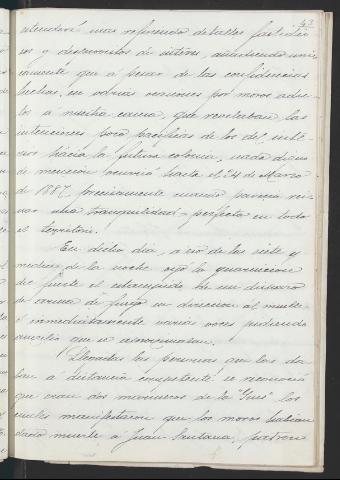 43
intentaré mas refiriendo detalles fastidio-
sos y desprovistos de interes, anadiendo unic
camente que á pesar de las confidencias
hechas, en varias ocasiones por moros adic-
tos á nuestra causa, que revelaban las
intenciones poco pacificas de los del inte-
rior hácia la futura colonia, nada digno
de mencion ocurrió hasta el 24 de Marzo
de 1887, precisamente cuando parecia rei-
nar una tranquilidad perfecta en todo
el territorio.
En dicho dia, á eso de las siete y
media de la noche oyó la guarnicion
del fuerte el estampido de un disparo
de arma de fuego en direccion al muelle
é inmediatamente varias voces pidiendo
auxilio que se aproximaban.
Llamadas las personas que las da-
ban á distancia competente se reconoció
que eran dos marineros de la "Ynés" los
cuales manifestaron que los moros habian
dado muerte á Juan Santana, patron